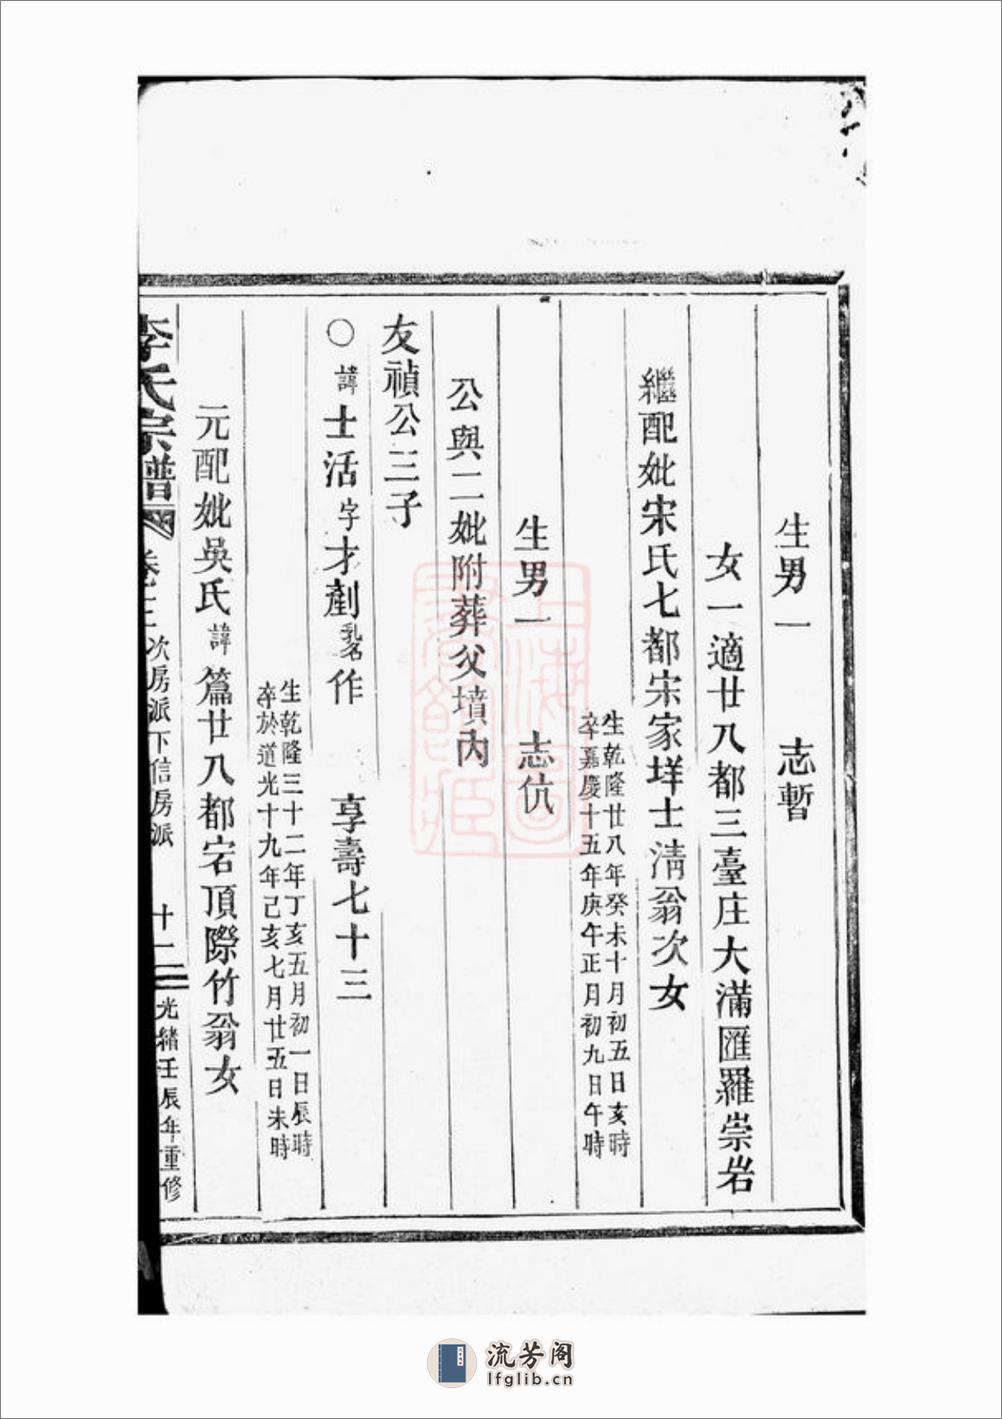 生男一　志暫
女一適廿八都三臺庄大滿匯羅崇岩
繼配妣宋氏七都宋家垟士淸翁次女
生乾隆廿八年癸未十月初五日亥時
卒嘉慶十五年庚午正月初九日午時
生男一　志伉
公與二妣附葬父墳內
友禎公三子
〇諱士活字才劊乳名作　享壽七十三
生乾隆三十二年丁亥五月初一日辰時
卒於道光十九年己亥七月廿五日未時
元配妣吳氏諱篇廿八都宕頂際竹翁女
李氏宗譜　卷三　次房派下信房派　十二　光緒壬辰年重修
上海圖
書館藏
流芳阁
lfglib.cn